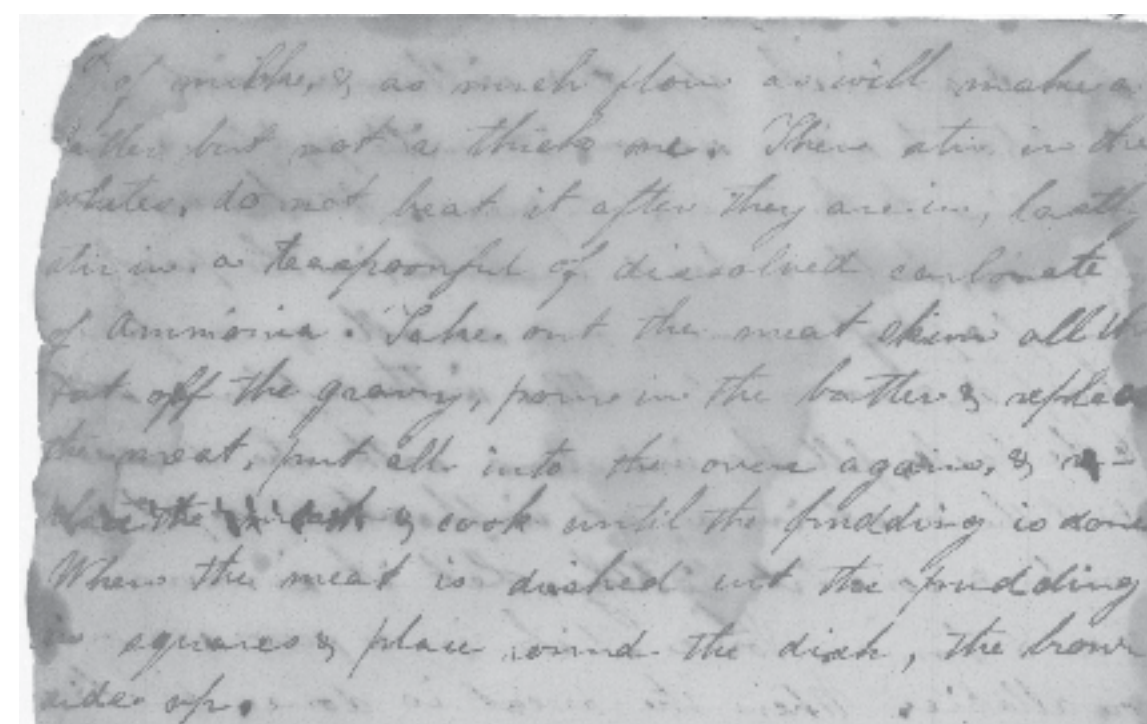 of milk, & as much flour as will make a
batter but not a thick one. Then stir in the
whites, do not beat it after they are in, lastly
stir in a teaspoonful of dissolved carbonate
of Ammonia. Take out the meat skim all the
fat off the gravy, pour in the batter & replace
the meat, put all into the oven again, & re-
the & cook until the pudding is done
When the meat is dished cut the pudding
in squares & place round the dish, the brown
side up.